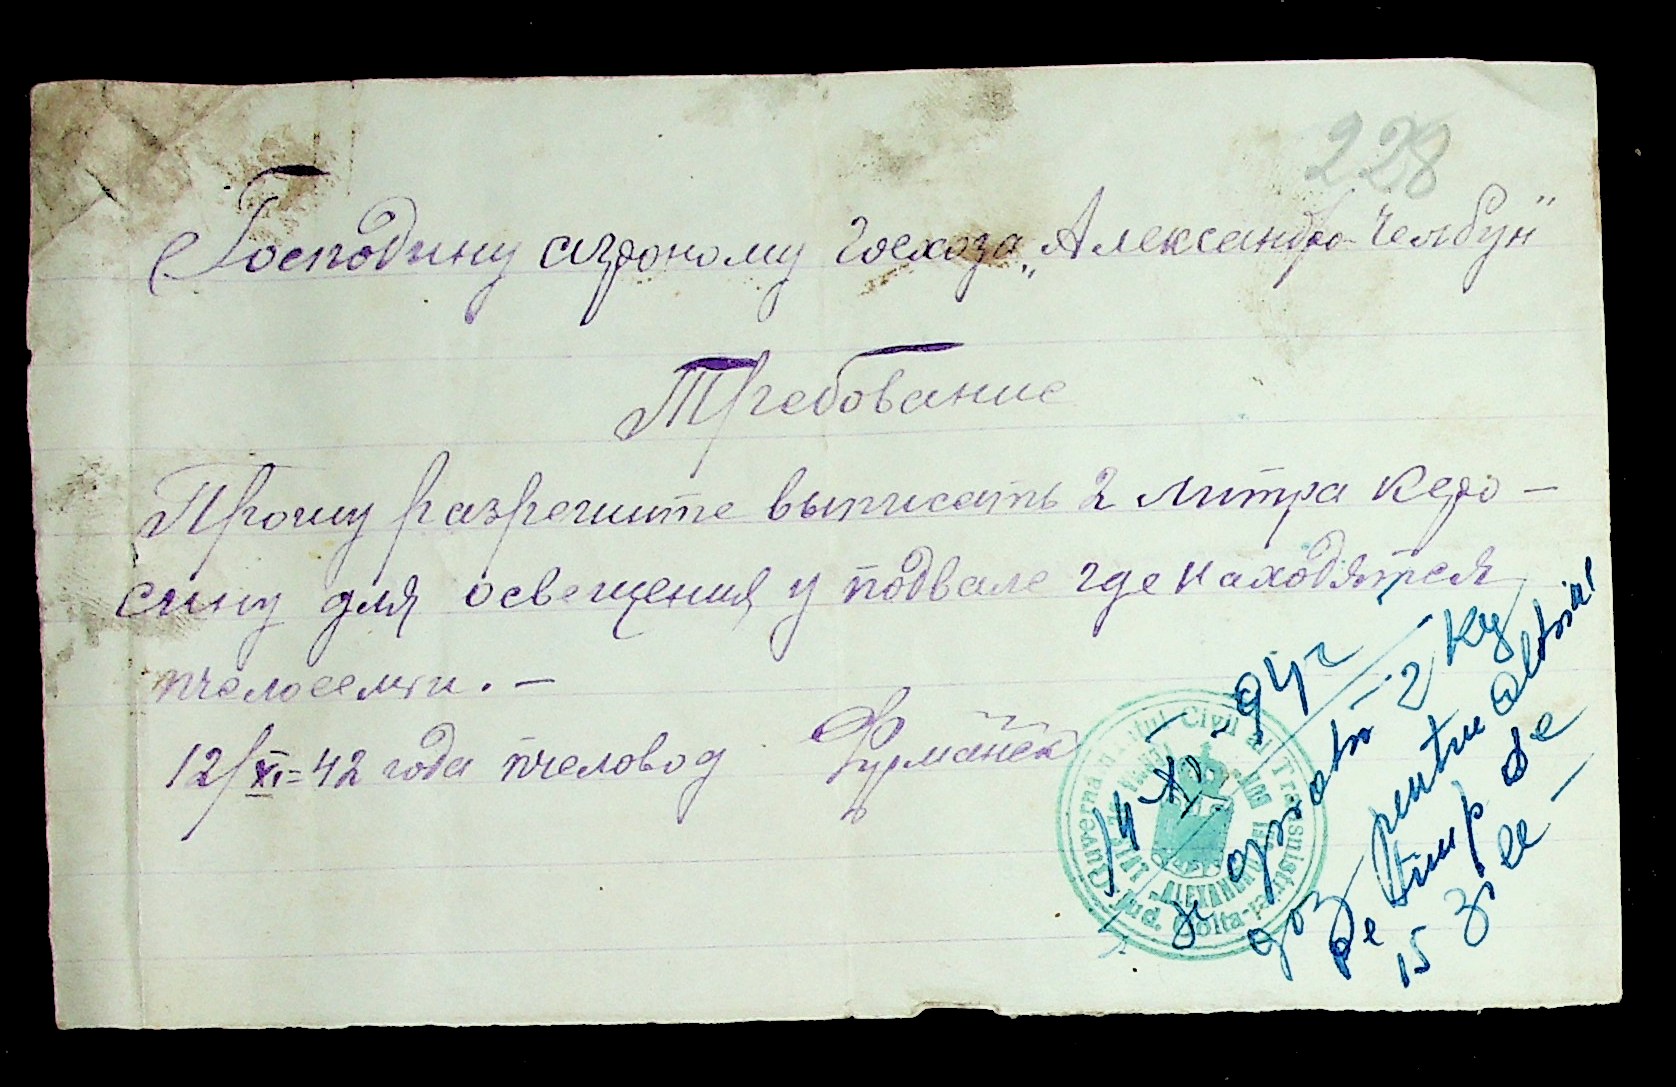 228
Господину агроному госхоза „Александро-Челбун"
Требование
Прошу разрешите выписать 2 литра керо-
сину для освещения у подвале где находятся
пчелосемти. -
12/XI=42 года пчеловод Фурманек
14 XI 942
Se aprobă 2 kg
gaz pentru
pe timp de
15 zile -
Guvernământul Civil al Transnistriei
Jud. Golta